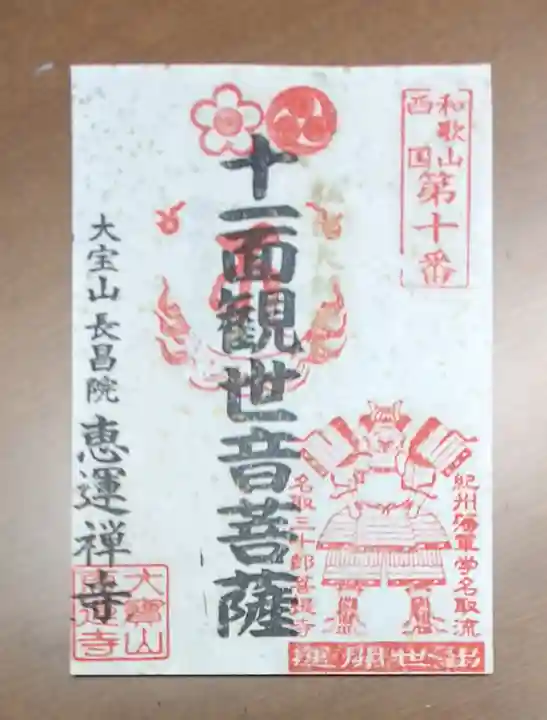 和歌山
西国
第十番
十一面観世音菩薩
紀州隠軍学名取流
名取三十郎菩提寺
出世開運
大宝山長昌院恵運禅寺
大寶山
恵運寺